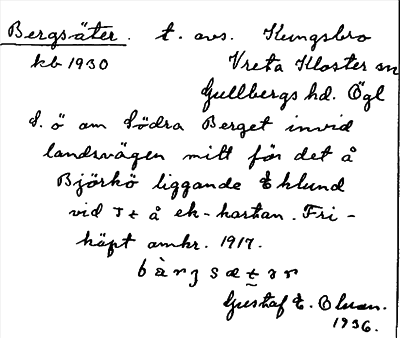 Bergsäter. t. avs. Kungsbro
kb 1930 Vreta Kloster sn
Gullbergs hd. Ögl
S. ö om Södra Berget invid
landsvägen mitt för det å
Björkö liggande Eklund
vid St å ek-kartan. Fri-
köpt omkr. 1917.
bàrʒsætər
Gustaf E.
1936.